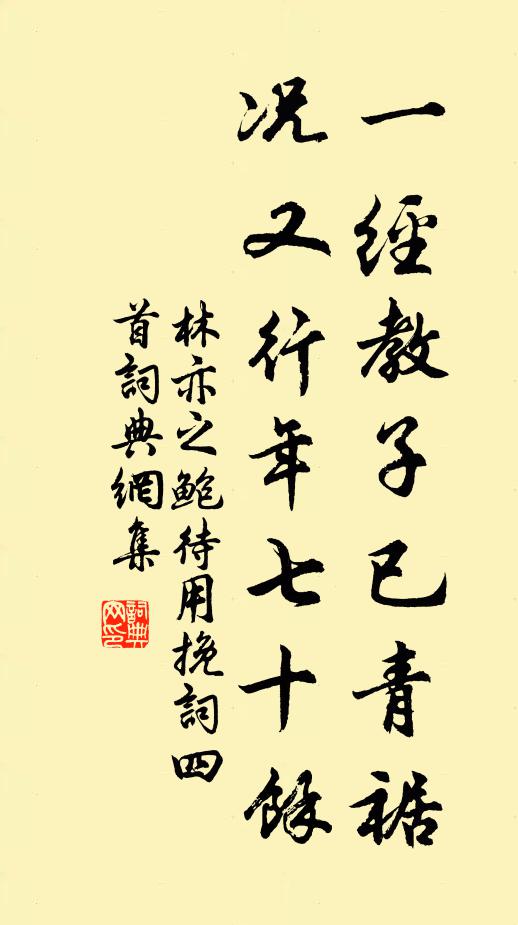 一經教子已青裾
况又行年七十餘
林亦之鲍待用挽詞四
首詞典網集
詞典网印